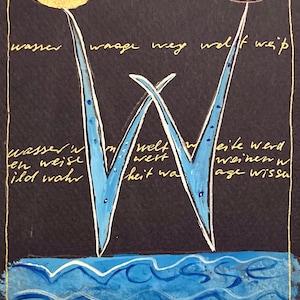 wasser waage weg welt weiß
W
wasser welt weite werd
en weise wert weinen w
ild wahr heit wa age wisse
wasse